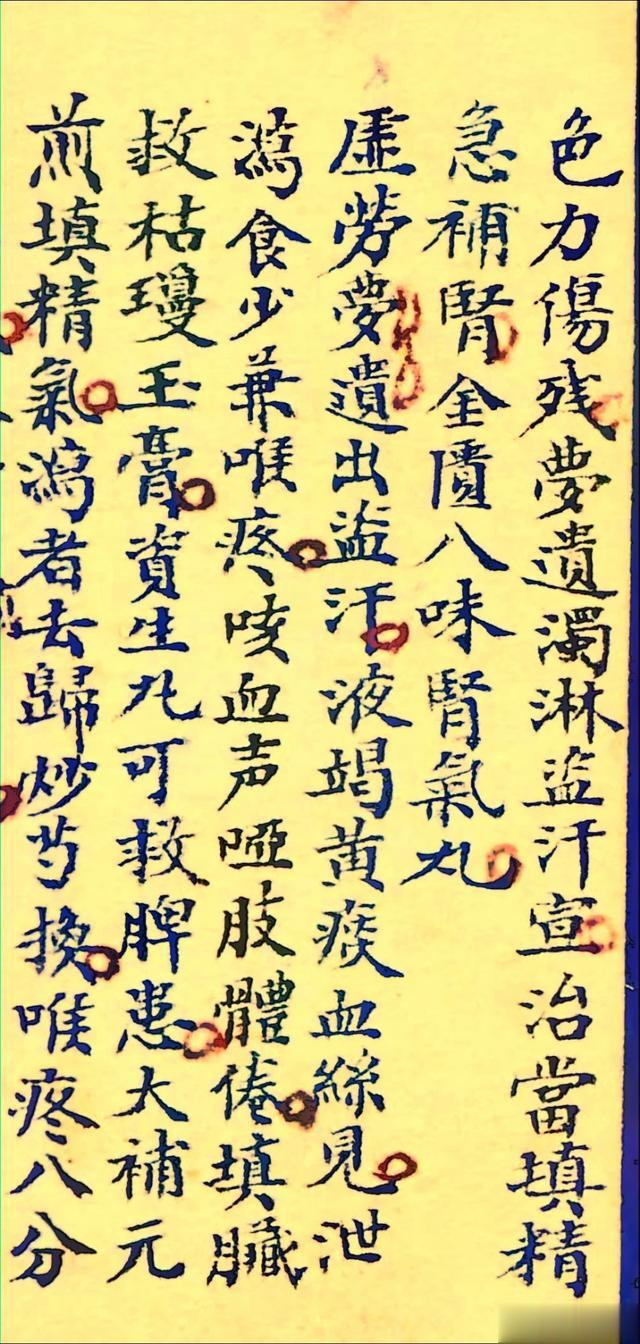 色力傷残夢遺濁淋盗汗宣治當填精
急補腎金匱八味腎氣丸
虛勞夢遺出盗汗液竭黄痰血絲見泄
瀉食少兼喉疼咳血声啞肢體倦填臟
救枯瓊玉膏資生丸可救脾患大補元
煎填精氣瀉者去歸炒芍換喉疼八分